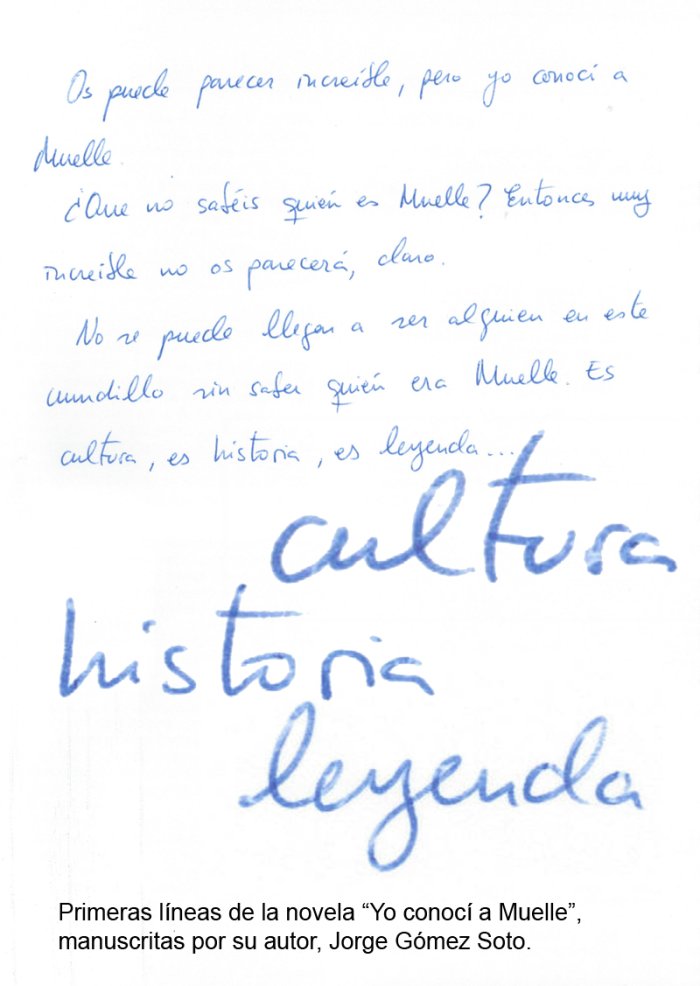 Os puede parecer increíble, pero yo conocí a
Muelle.
¿Que no sabéis quién es Muelle? Entonces muy
increíble no os parecerá, claro.
No se puede llegar a ser alguien en este
mundillo sin saber quién era Muelle. Es
cultura, es historia, es leyenda...
cultura
historia
leyenda
Primeras líneas de la novela “Yo conocí a Muelle”,
manuscritas por su autor, Jorge Gómez Soto.